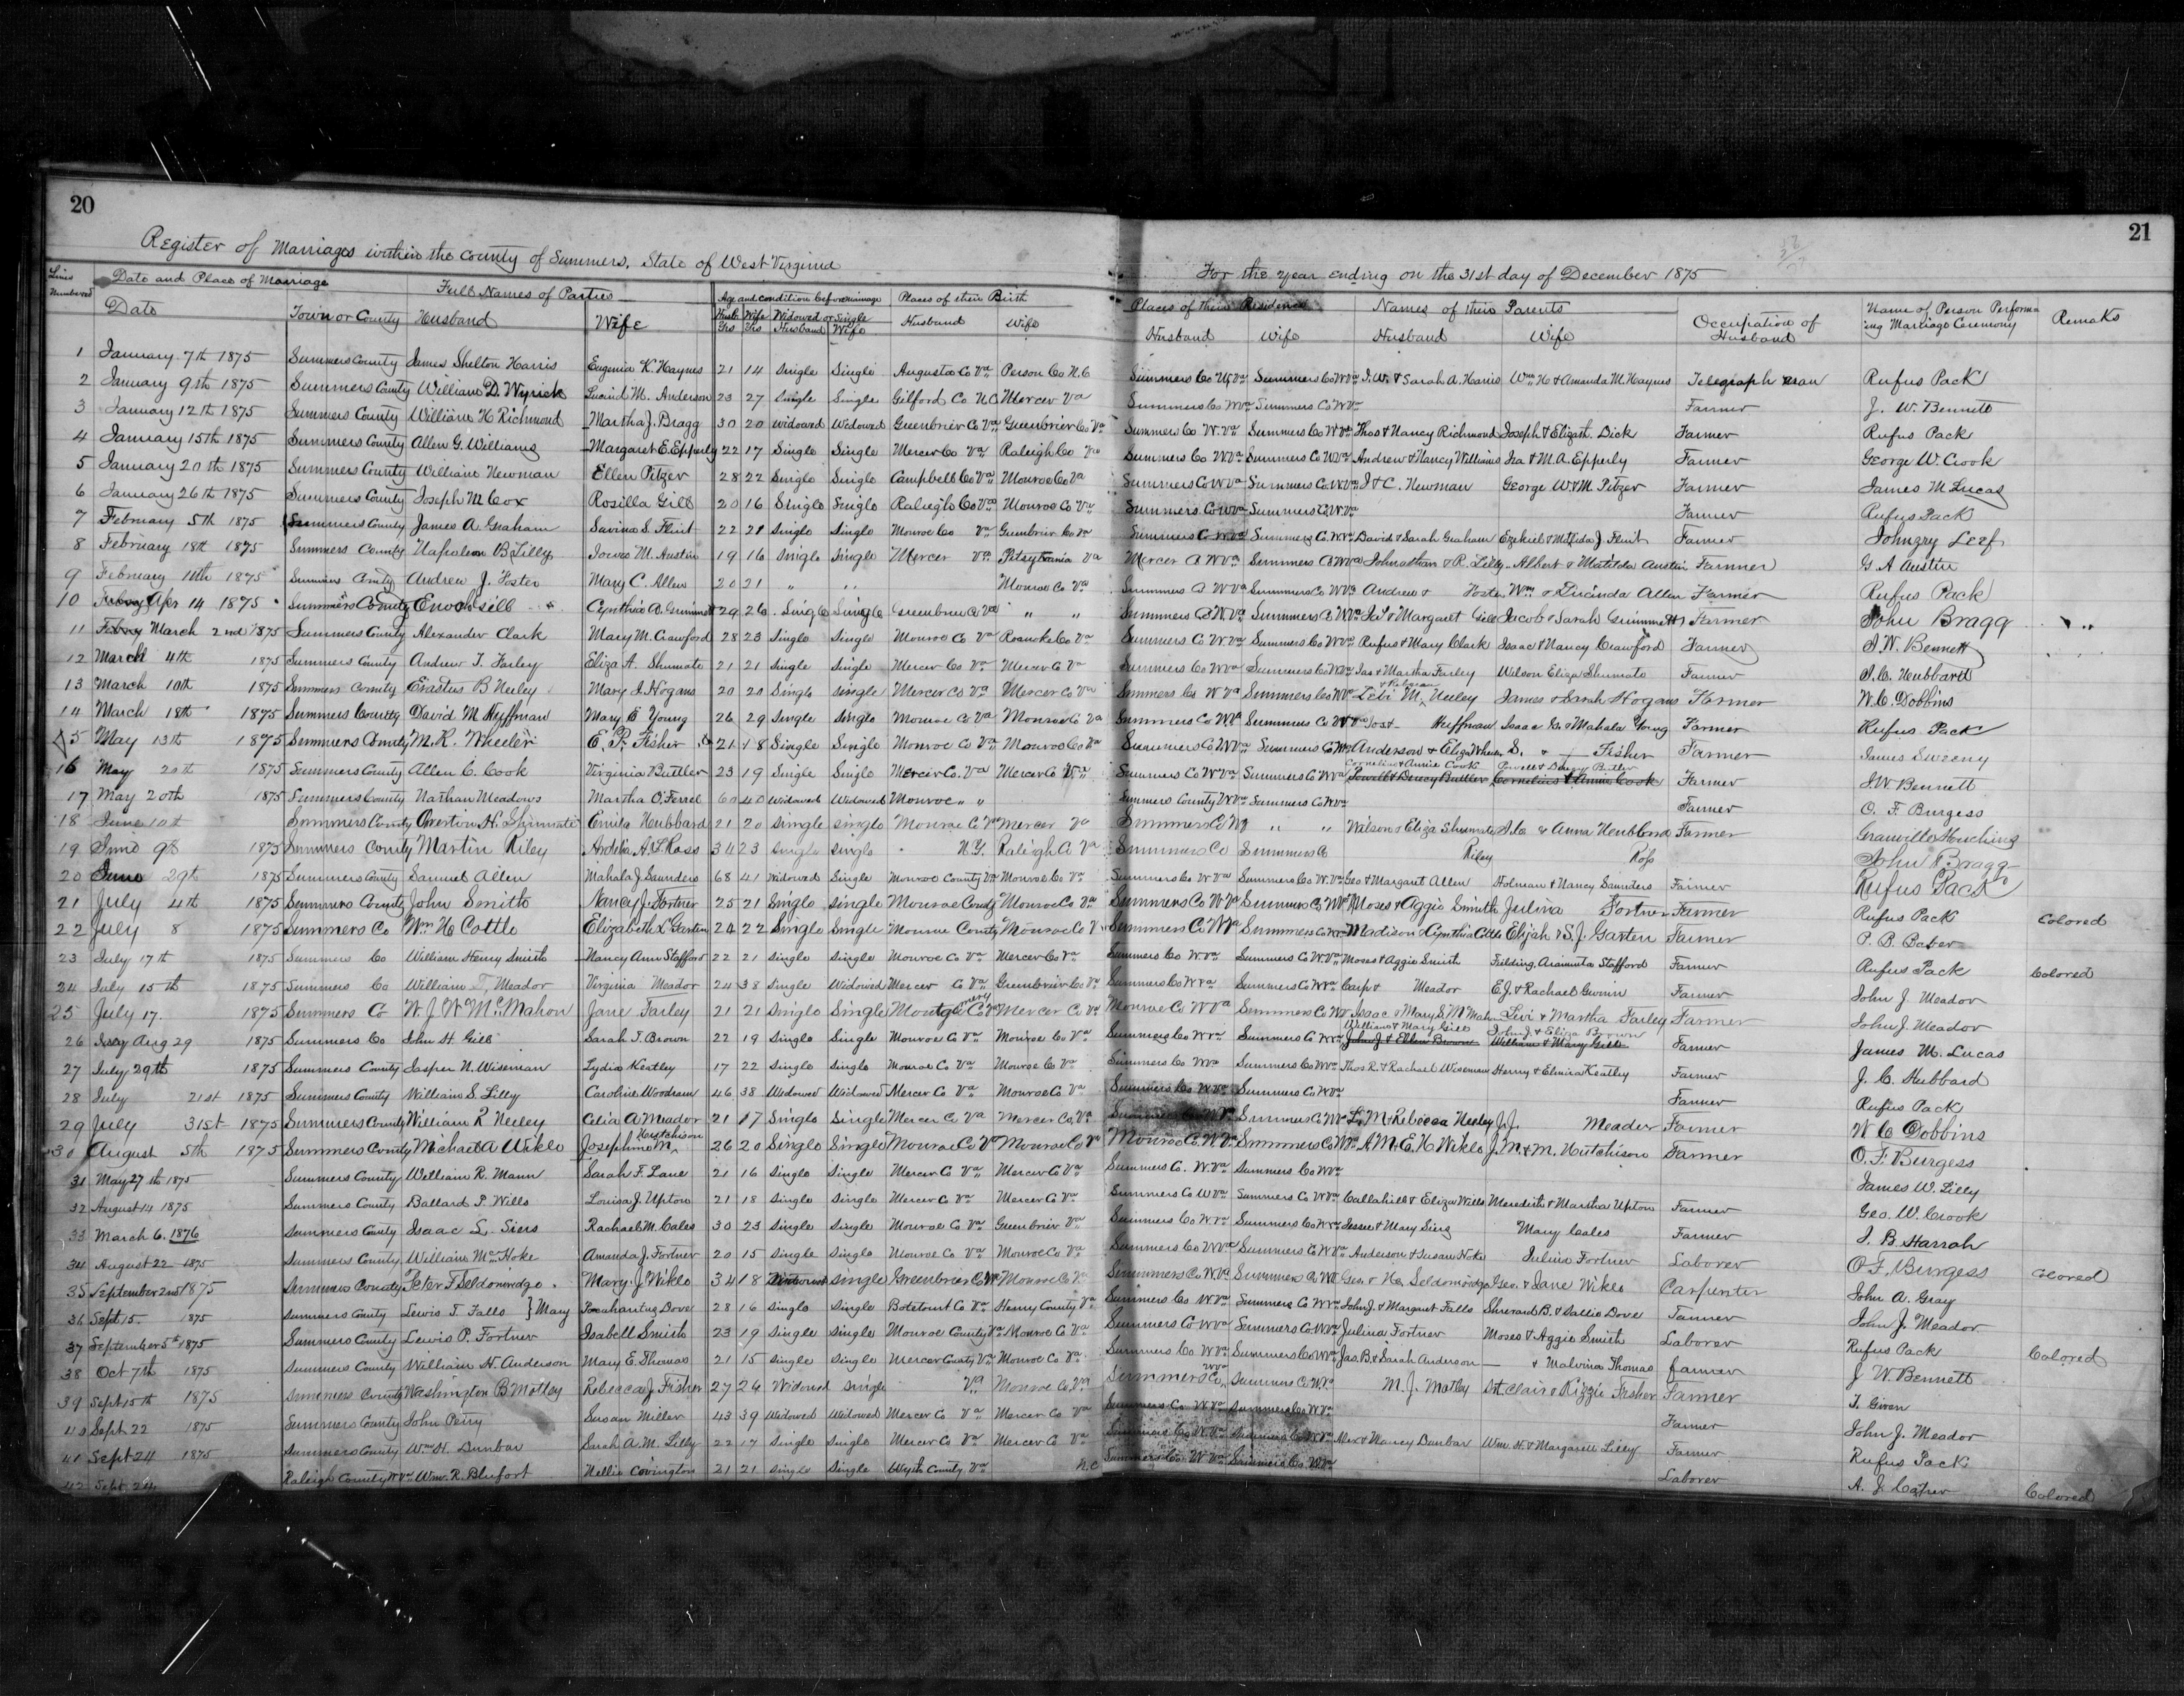 20
21
Register of Marriages within the County of Summers, State of West Virginia
For the year ending on the 31st day of December 1875
Lines Numbered Date and Place of Marriage Full Names of Parties Age and condition before marriage Places of their Birth Places of their Residence Names of their Parents Occupation of Husband Name of Person Performing Marriage Ceremony Remarks
Date Town or County Husband Wife Husb Yrs Wife Yrs Widowed or Single Husband Wife Husband Wife Husband Wife Husband Wife
1 January 7th 1875 Summers County James Shelton Harris Eugenia K. Haynes 21 14 Single Single Augusta Co Va Person Co N.C Summers Co W.Va Summers Co W Va J. W. & Sarah A. Harris Wm H & Amanda M. Haynes Telegraph man Rufus Pack
2 January 9th 1875 Summers County William D. Wyrick M. Anderson 23 27 Single Single Gilford Co N.C Mercer Va Summers Co W Va Summers Co W Va Farmer J. W. Bennett
3 January 12th 1875 Summers County William H Richmond Martha J. Bragg 30 20 Widowed Widowed Greenbrier Co Va Greenbrier Co Va Summers Co W.Va Summers Co W Va Thos & Nancy Richmond Joseph & Elizath. Dick Farmer Rufus Pack
4 January 15th 1875 Summers County Allen G. Williams Margaret E. Epperly 22 17 Single Single Mercer Co Va Raleigh Co Va Summers Co W Va Summers Co W Va Andrew & Nancy Williams Ira & M.A. Epperly Farmer George W. Crook
5 January 20th 1875 Summers County William Newman Ellen Pitzer 28 22 Single Single Campbell Co Va Monroe Co Va Summers Co W Va Summers Co W Va J & C. Newman George W & M. Pitzer Farmer James M Lucas
6 January 26th 1875 Summers County Joseph M Cox Rosilla Gill 20 16 Single Single Raliegh Co Va Monroe Co Va Summers Co W Va Summers Co W Va Farmer Rufus Pack
7 February 5th 1875 Summers County James A. Graham Savina S. Flint 22 21 Single Single Monroe Co Va Greenbrier Co Va Summers Co W Va Summers Co W Va David & Sarah Graham Ezekiel & Matilda J. Flint Farmer Johngry Leef
8 February 18th 1875 Summers County Napoleon B Lilly Iowa M. Austin 19 16 Single Single Mercer Va Pitsylvania Va Mercer Co W Va Summers Co W Va Johnathan & R. Lilly Albert & Matilda Austin Farmer G A Austin
9 February 1875 Summers County Andrew J. Foster Mary C. Allen 20 21 " " Monroe Co Va Summers Co W Va Summers Co W Va Andrew & Foster Wm & Lucinda Allen Farmer Rufus Pack
10 Apr 14 1875 Summers County Enoch Gill Cynthia A. Grimmett 29 26 Single Single Greenbrier Co Va " " Summers Co W Va Summers Co W Va & Margaret Gill Jacob & Sarah Grimmett Farmer John Bragg
11 March 2nd 1875 Summers County Alexander Clark Mary M. Crawford 28 23 Single Single Monroe Co Va Roanoke Co Va Summers Co W Va Summers Co W Va Rufus & Mary Clark Isaac & Nancy Crawford Farmer J. W. Bennett
12 March 4th 1875 Summers County Andrew J. Farley Eliza A. Shumate 21 21 Single Single Mercer Co Va Mercer Co Va Summers Co W Va Summers Co W Va Jas & Martha Farley Wilson Eliza Shumate Farmer J. C. Hubbard
13 March 10th 1875 Summers County Erastus B Neeley Mary J. Hogans 20 20 Single Single Mercer Co Va Mercer Co Va Summers Co W Va Summers Co W Va Levi M. & Rebecca Neeley James & Sarah Hogans Farmer W. C. Dobbins
14 March 18th 1875 Summers County David M Huffman Mary E Young 26 29 Single Single Monroe Co Va Monroe Co Va Summers Co W Va Summers Co W Va Huffman Isaac G. & Mahala Young Farmer Rufus Pack
15 May 13th 1875 Summers County M. K. Wheeler E. P. Fisher 21 18 Single Single Monroe Co Va Monroe Co Va Summers Co W Va Summers Co W Va Anderson & Eliza Wheeler S. & Fisher Farmer James Sweeny
16 May 20th 1875 Summers County Allen C. Cook Virginia Buttler 23 19 Single Single Mercer Co. Va Mercer Co Va Summers Co W Va Summers Co W Va Cornelius & Annie Cook Powell & Dency Butler Farmer J. W. Bennett
17 May 20th 1875 Summers County Nathan Meadows Martha O'Ferrel 60 40 Widowed Widowed Monroe " " Summers County W Va Summers Co W Va Farmer O. F. Burgess
18 June 10th Summers County Overton H. Shumate Emila Hubbard 21 20 Single Single Monroe Co Va Mercer Va Summers Co W Va " " Wilson & Eliza Shumate & Anna Hubbard Farmer Granville Houchins
19 June 9th 1875 Summers County Martin Riley Ardelia A. L. Ross 34 23 Single Single N.Y. Raleigh Co Va Summers Co Summers Co Riley Ross John Bragg
20 June 29th 1875 Summers County Samuel Allen Mahala J Saunders 68 41 Widowed Single Monroe County Va Monroe Co Va Summers Co W Va Summers Co W. Va Geo & Margaret Allen Holman & Nancy Saunders Farmer Rufus Pack
21 July 4th 1875 Summers County John Smith Nancy J. Fortner 25 21 Single Single Monroe County Monroe Co Va Summers Co W Va Summers Co W Va Moses & Aggie Smith Julina Fortner Farmer Rufus Pack Colored
22 July 8 1875 Summers Co Wm H. Cottle Elizabeth L Garten 24 22 Single Single Monroe County Monroe Co V Summers Co W Va Summers Co W Va Madison & Cynthia Cottle Elijah & S. J. Garten Farmer P. B. Baber
23 July 17th 1875 Summers Co William Henry Smith Nancy Ann Stafford 22 21 Single Single Monroe Co Va Mercer Co Va Summers Co W Va Summers Co W. Va Moses & Aggie Smith Fielding, Araminta Stafford Farmer Rufus Pack Colored
24 July 15th 1875 Summers Co William T. Meador Virginia Meador 24 38 Single Widowed Mercer Co Va Greenbrier Co Va Summers Co W Va Summers Co W Va Carp & Meador E.J. & Rachael Gwinn Farmer John J. Meador
25 July 17. 1875 Summers Co W. J. W McMahon Jane Farley 21 21 Single Single Montgomery Co Va Mercer Co Va Monroe Co W Va Summers Co W Va Isaac & Mary S. McMahon Levi & Martha Farley Farmer John J. Meador
26 Aug 29 1875 Summers Co John H. Gill Sarah T. Brown 22 19 Single Single Monroe Co Va Monroe Co Va Summers Co W Va Summers Co W Va William & Mary Gill John J. & Eliza Brown Farmer James M. Lucas
27 July 29th 1875 Summers County Jasper N. Wiseman Lydia Keatley 17 22 Single Single Monroe Co Va Monroe Co Va Summers Co W Va Summers Co W Va Thos R. & Rachael Wiseman Henry & Elmira Keatley Farmer J. C. Hubbard
28 July 21st 1875 Summers County William S. Lilly Caroline Woodram 46 38 Widowed Widowed Mercer Co Va Monroe Co Va Summers Co W Va Summers Co W Va Farmer Rufus Pack
29 July 31st 1875 Summers County William R Neeley Celia A Meador 21 17 Single Single Mercer Co Va Mercer Co, Va Summers Co W Va Summers Co W Va L. M & Rebecca Neeley J. J. Meador Farmer W C Dobbins
30 August 5th 1875 Summers County Michael A Wiklo Josephine M Hutchison 26 20 Single Single Monroe Co V Monroe Co Va Monroe Co. W. Va Summers Co W Va A. M. & E. H Wiklo J. M. & M. Hutchison Farmer O. F. Burgess
31 May 27th 1875 Summers County William R. Mann Sarah F. Lane 21 16 Single Single Mercer Co Va Mercer Co Va Summers Co. W. Va Summers Co W Va James W. Lilly
32 August 14 1875 Summers County Ballard P. Wills Louisa J. Upton 21 18 Single Single Mercer Co Va Mercer Co Va Summers Co W Va Summers Co W Va Callahill & Eliza Wills Meredith & Martha Upton Farmer Geo. W. Crook
33 March 6. 1876 Summers County Isaac L. Siers Rachael M. Cales 30 23 Single Single Monroe Co Va Greenbrier Va Summers Co W Va Summers Co W Va Jessee & Mary Mary Cales Farmer J. B. Harrah
34 August 22 1875 Summers County William Mc Hoke Amanda J. Fortner 20 15 Single Single Monroe Co Va Monroe Co Va Summers Co W Va Summers Co W Va Anderson & Susan Hoke Julina Fortner Laborer O F. Burgess Colored
35 September 2nd 1875 Summers County Peter F Seldomridge Mary J. Wiklo 34 18 single Greenbrier Co W Monroe Co V Summers Co W. Va Summers Co W Va Geo. & Seldomridge Geo. & Jane Wiklo Carpenter John A. Gray
36 Sept 15. 1875 Summers County Lewis T. Falls } Mary Pocahantus Dove 28 16 Single Single Botetourt Co Va Henry County Va Summers Co W Va Summers Co W Va John J. & Margaret Falls Sherard B. & Sallie Dove Farmer John J. Meador
37 September 5th 1875 Summers County Lewis P. Fortner Isabell Smith 23 19 Single Single Monroe County Va Monroe Co Va Summers Co W Va Summers Co W Va Julina Fortner Moses & Aggie Smith Laborer Rufus Pack Colored
38 Oct 7th 1875 Summers County William H. Anderson Mary E Thomas 21 15 Single Single Mercer County Va Monroe Co. Va Summers Co W Va Summers Co W Va Jas. B. & Sarah Anderson & Malvina Thomas farmer J W Bennett
39 Sept 15th 1875 Summers County Washington B Motley Rebecca J. Fisher 27 24 Widowed Single Va Monroe Co. Va Summers Co W Va Summers Co W Va M. J. Motley St Clair & Kizzie Fisher Farmer T. Given
40 Sept 22 1875 Summers County John Perry Susan Miller 43 39 Widowed Widowed Mercer Co Va Mercer Co Va Summers Co W Va Summers Co W Va Farmer John J. Meador
41 Sept 24 1875 Summers County Wm H. Dunbar Sarah A. M. Lilly 22 17 Single Single Mercer Co Va Mercer Co Va Summers Co W. Va Summers Co W Va Alex & Nancy Dunbar Wm. H. & Margarett Lilly Farmer Rufus Pack
42 Sept 24 Raleigh County W Va Wm. R. Blufort Nellie Covington 21 21 Single Single Wyth County Va N. C Summers Co W Va Summers Co. W. Va Laborer A. J. Colored